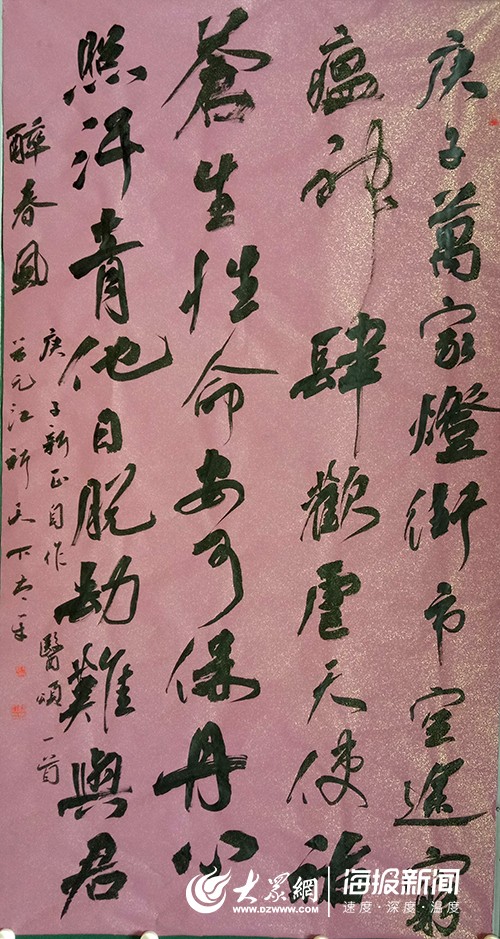 庚子萬家燈街市空
瘟神肆虐天使
蒼生性命安可保丹心
照汗青他日脫劫難與君
醉春風
庚子新正自作醫頌一首
元江祈天下太平
大众網
WWW.DZWWW.COM
海报新闻
速度·深度·温度